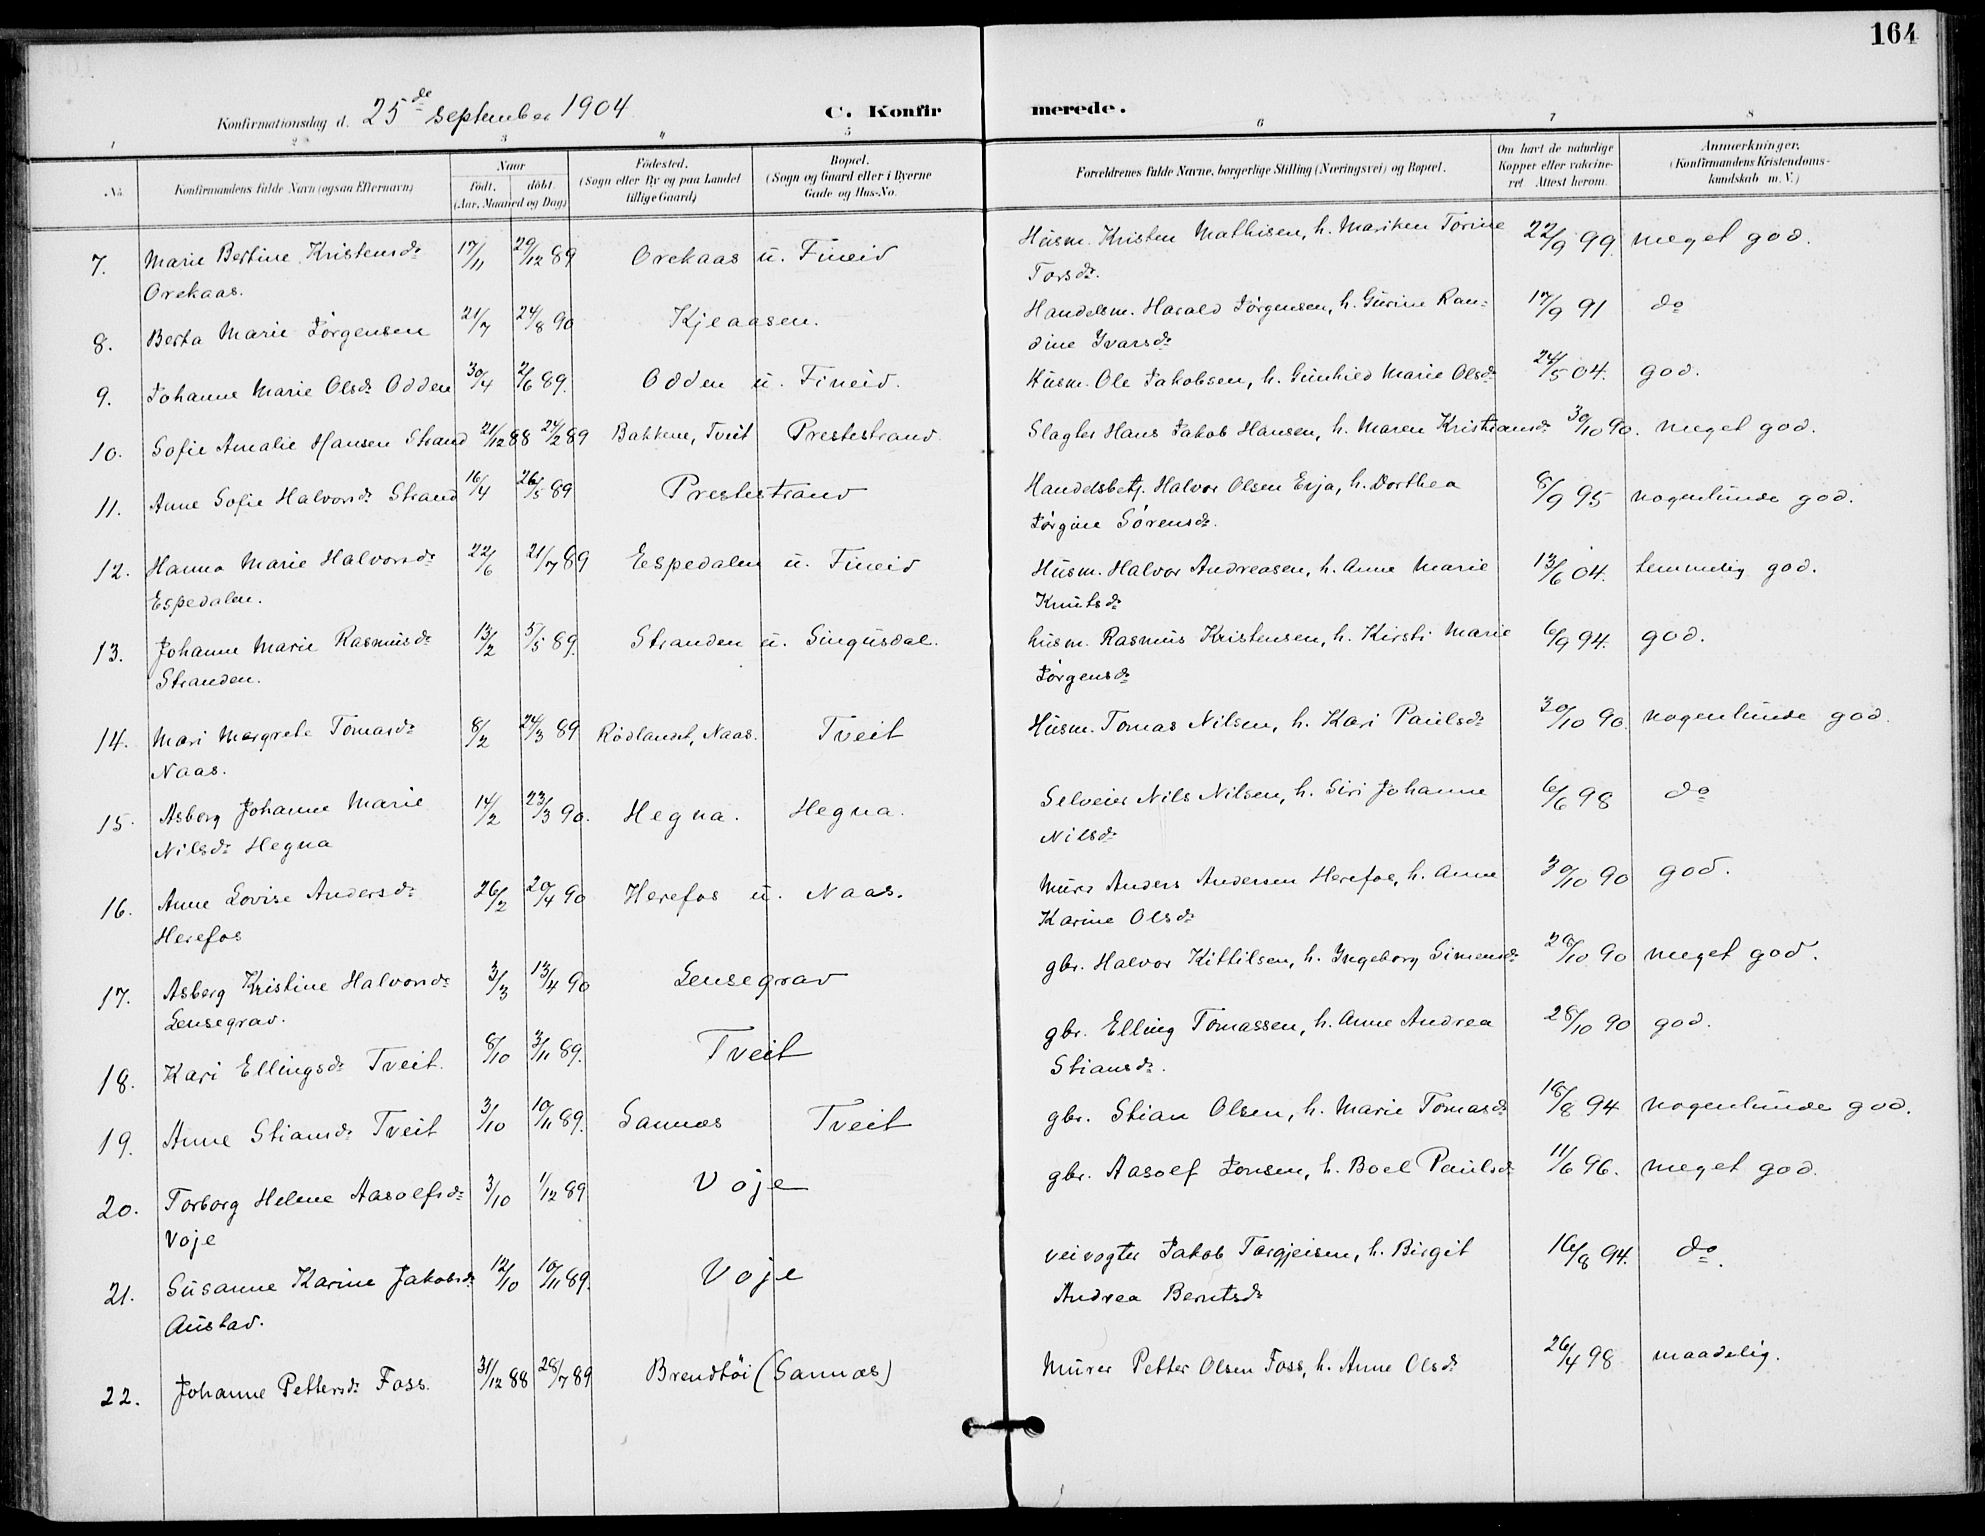 164
Konfirmationsdag d. 25de September 1904 C. Konfirmerede.
1 2 3 4 5 6 7 8
No. Konfirmandens fulde Navn (ogsaa Efternavn) Naar født. døbt. (Aar, Maaned og Dag) Fødested. (Sogn eller By og paa Landet tillige Gaard) Bopæl. (Sogn og Gaard eller i Byerne Gade og Hus-No. Forældrenes fulde Navne, borgerlige Stilling (Næringsvei) og Bopæl. Om havt de naturlige Kopper eller vakcineret Attest herom. Anmærkninger. (Konfirmandens Kristendomskundskab m. V.)
7. Marie Bertine Kristensdr 17/11 29/12 89 Orekaas u. Fineid Husm. Kristen Mathisen, h. Mariken Torine 22/9 99. meget god.
Orekaas. Torsdr.
8. Berta Marie Jørgensen 21/7 24/8 90 Kjeaasen. Handelsm. Harald Jørgensen, h. Gurine Ran- 17/9 91 do
dine Ivarsdr
9. Johanne Marie Olsdr Odden 30/4 2/6 89. Odden u. Fineid. Husm. Ole Jakobsen, h. Gunhild Marie Olsdr 24/5 04. god.
10. Sofie Amalie Hansen Strand 21/12 88 24/2 89 Bakkene, Tveit Prestestrand. Slagter Hans Jakob Hansen, h. Maren Kristiansdr 30/10 90. meget god.
11. Anne Sofie Halvorsdr Strand 16/4 26/5 89 Prestestrand Handelsbetj. Halvor Olsen Eija, h. Dorthea 8/9 95 nogenlunde god.
Jørgine Sørensdr.
12. Hanna Marie Halvorsdr 22/6 21/7 89 Espedalen u. Fineid Husm. Halvor Andreasen, h. Anne Marie 13/6 04. temmelig god.
Espedalen. Knutsdr
13. Johanne Marie Rasmusdr 13/2 5/5 89. Stranden u. Singusdal. husm. Rasmus Kristensen, h. Kirsti Marie 6/9 94. god.
Stranden. Jørgensdr
14. Mari Margrete Tomasdr 8/2 24/3 89 Rødlandet, Naas. Tveit Husm. Tomas Nilsen, h. Kari Paulsdr 30/10 90. nogenlunde god.
Naas.
15. Asberg Johanne Marie 14/2 23/3 90. Hegna. Hegna. Selveier Nils Nilsen, h. Siri Johanne 6/6 98 do
Nilsdr Hegna Nilsdr
16. Anne Lovise Andersdr 26/2 20/4 90 Herefos u. Naas. Murer Anders Andersen Herefos, h. Anne 30/10 90 god.
Herefos Karine Olsdr
17. Asberg Kristine Halvorsdr 3/3 13/4 90 Lensegrav gbr. Halvor Kittilsen, h. Ingeborg Simensdr 29/10 90 meget god.
Lensegrav.
18. Kari Ellingsdr Tveit. 8/10 3/11 89. Tveit gbr. Elling Tomassen, h. Anne Andrea 28/10 90 god.
Stiansdr.
19. Anne Stiansdr Tveit 3/10 10/11 89. Sannæs Tveit gbr. Stian Olsen, h. Marie Tomasdr 18/8 94 nogenlunde god.
20. Torborg Helene Aasolfsdr 3/10 1/12 89 Voje gbr. Aasolf Jonsen, h. Boel Paulsdr 11/6 96. meget god.
Voje
21. Susanne Karine Jakobsdr 12/10 10/11 89. Voje veivogter Jakob Targjeisen, h. Birgit 16/8 94. do.
Austad. Andrea Berntsdr
22. Johanne Pettersdr Foss. 31/12 88 28/7 89 Brendtøi (Sannæs) Murer Petter Olsen Foss, h. Anne Olsdr 26/4 98. maadelig.